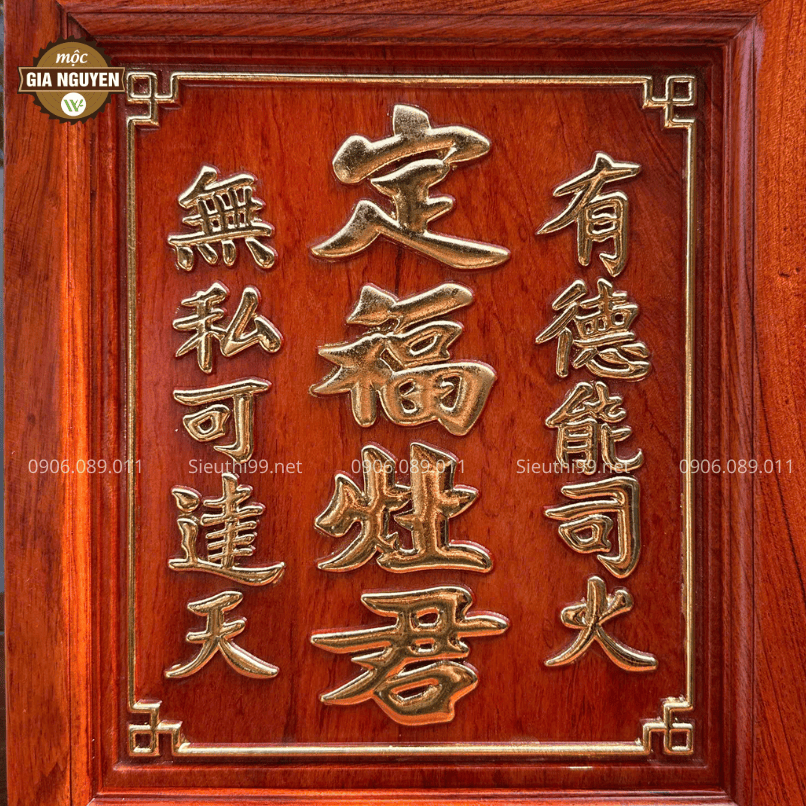 mộc
GIA NGUYEN
有德能司火
定福灶君
無私可達天
0906.089.011 Sieuthi99.net 0906.089.011 Sieuthi99.net 0906.089.011